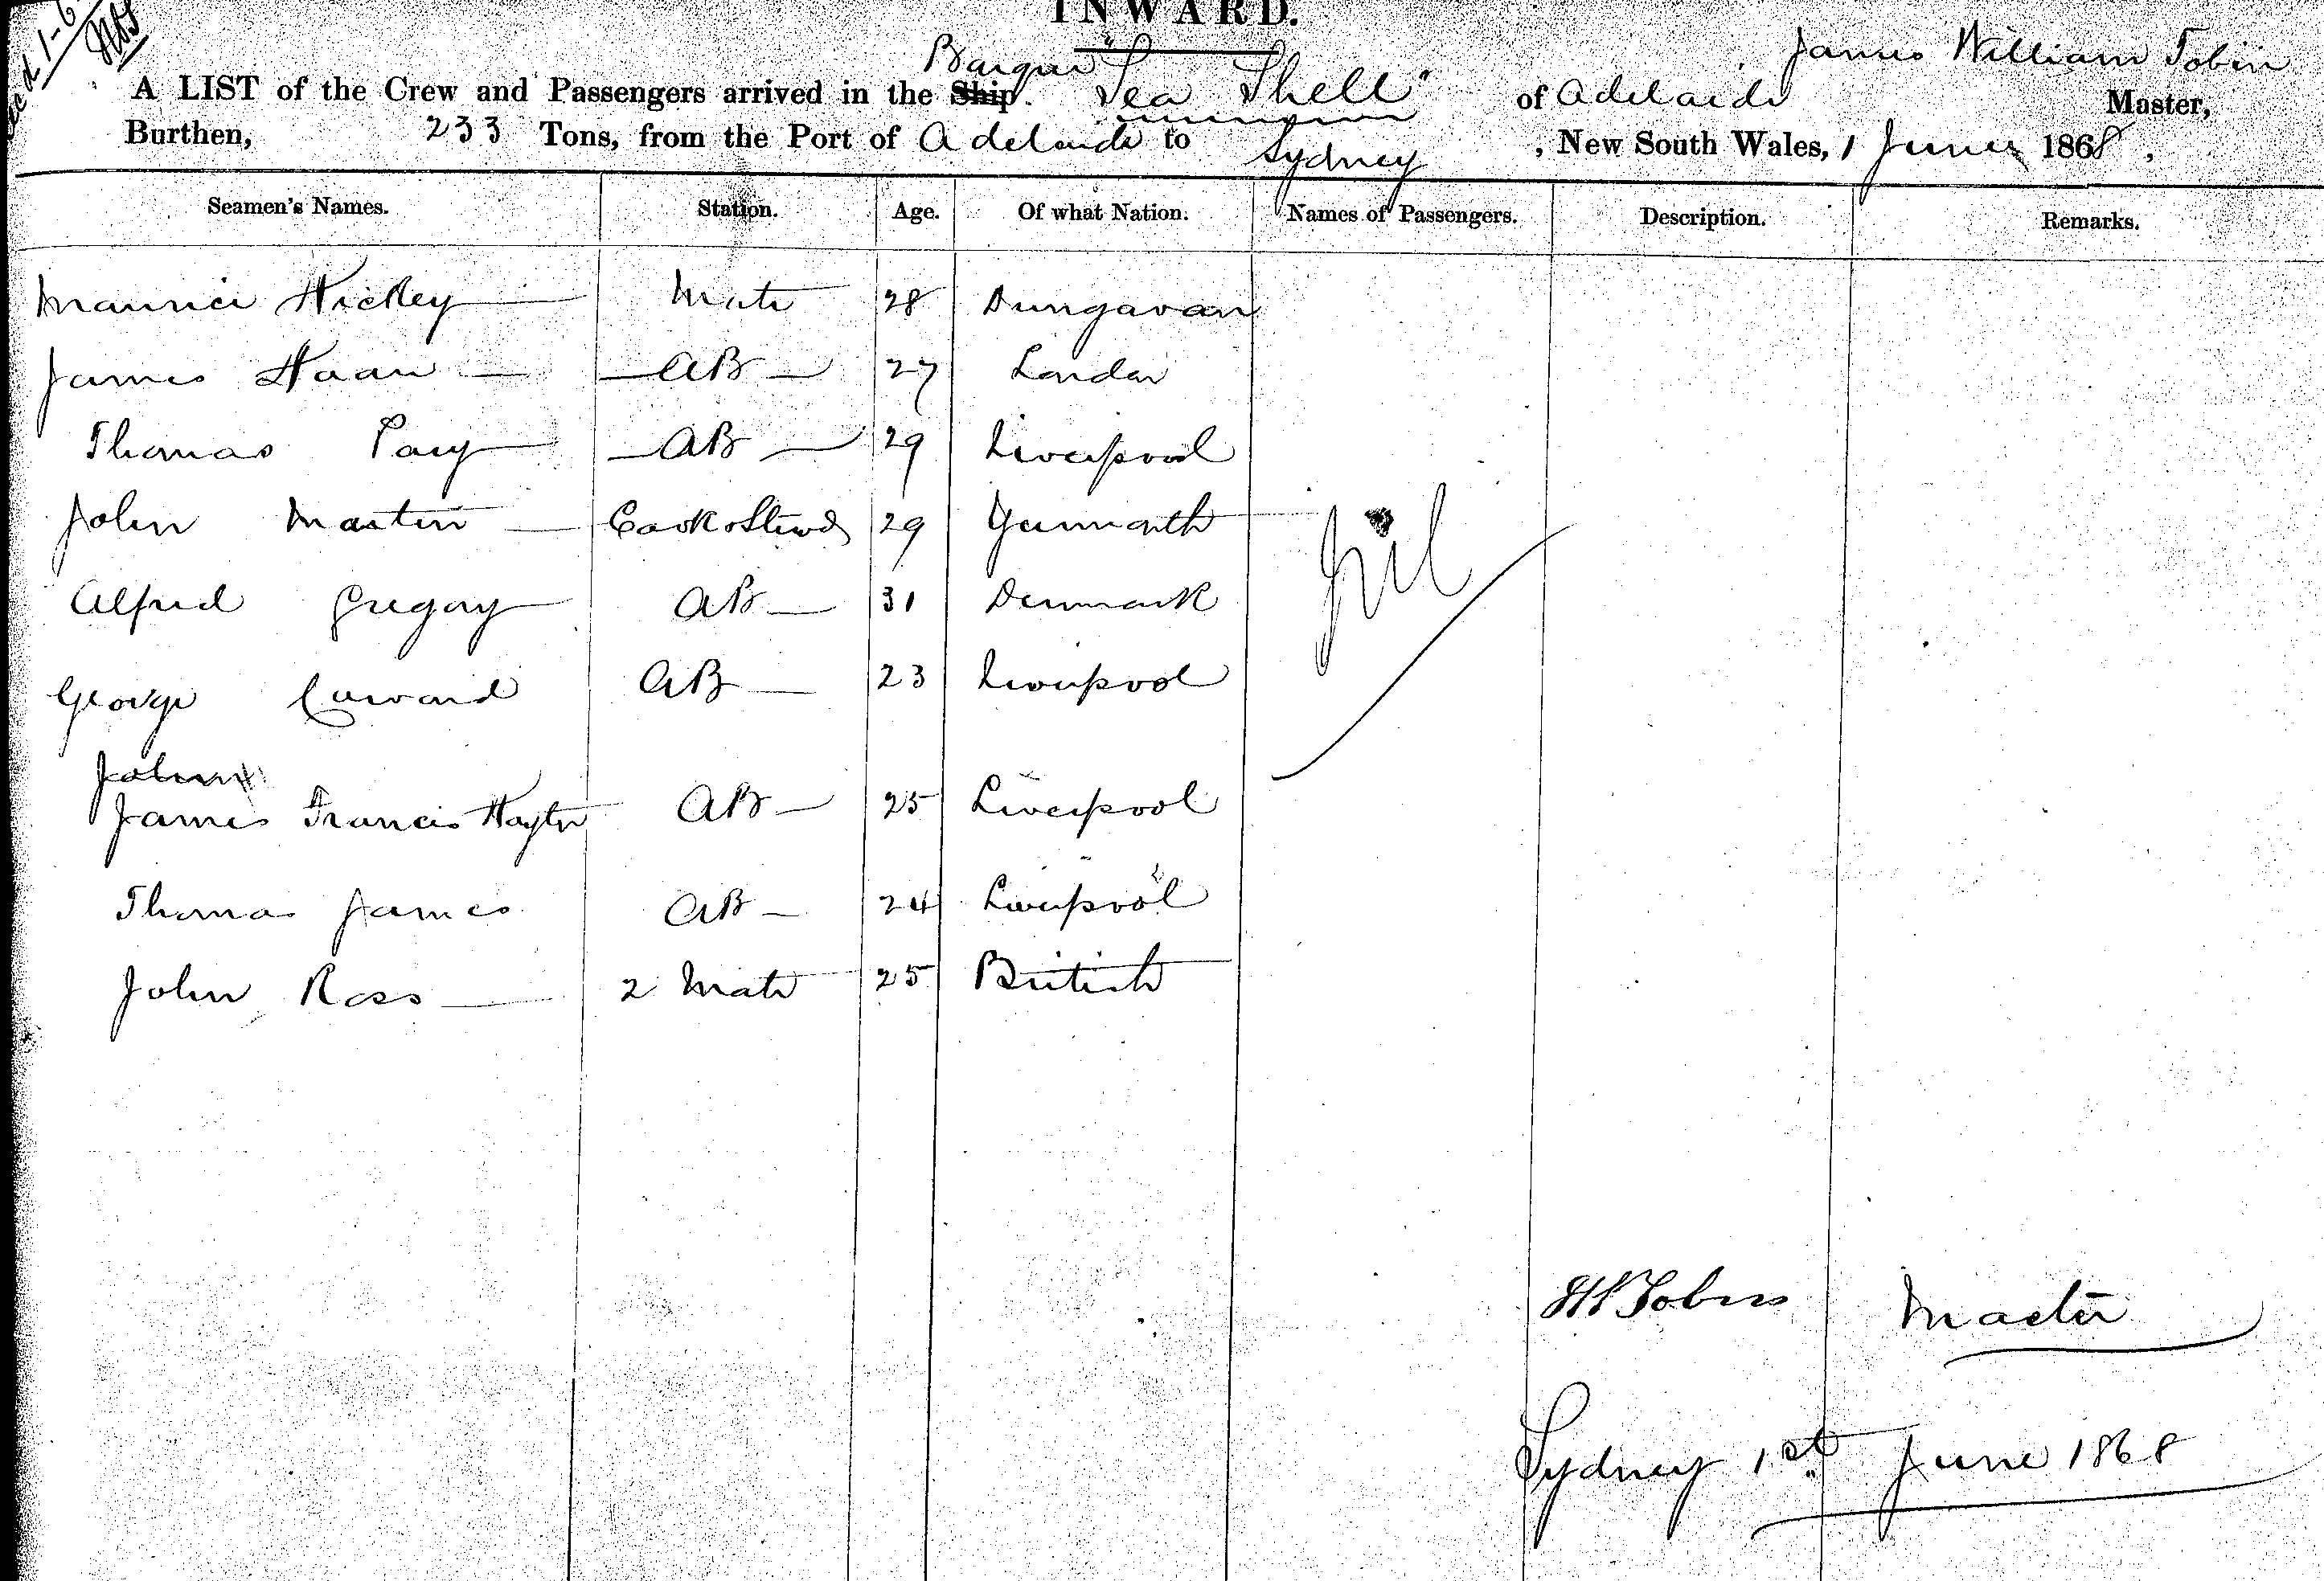 INWARD.
Barque James William Tobin
A LIST of the Crew and Passengers arrived in the Ship. "Sea Shell" of Adelaide Master,
Burthen, 233 Tons, from the Port of Adelaide to Sydney, New South Wales, 1 June 1868.
Seamen's Names. Station. Age. Of what Nation. Names of Passengers. Description. Remarks.
Maurice Hickey Mate 28 Dungavaan
James Haan AB 27 London
Thomas AB 29 Liverpool
John Martin Cook & Stewd 29 Yarmouth
Nil
Alfred Gregory AB 31 Denmark
George Edward AB 23 Liverpool
John
James Francis Hayter AB 25 Liverpool
Thomas James AB 24 Liverpool
John Ross 2 Mate 25 British
JW Tobin Master
Sydney 1st June 1868